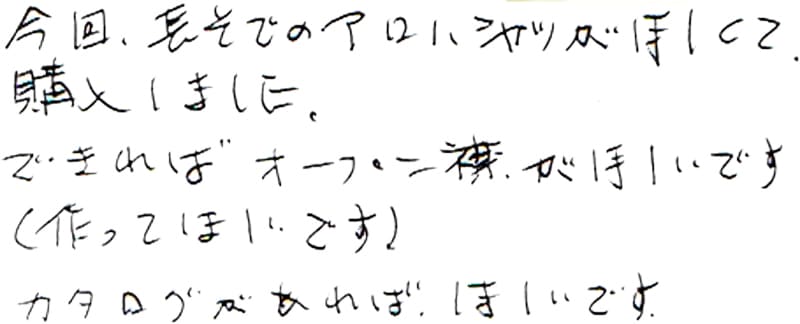 今回、長そでのアロハシャツがほしくて、
購入しました。
できればオープン襟がほしいです
(作ってほしいです)
カタログがあれば、ほしいです。